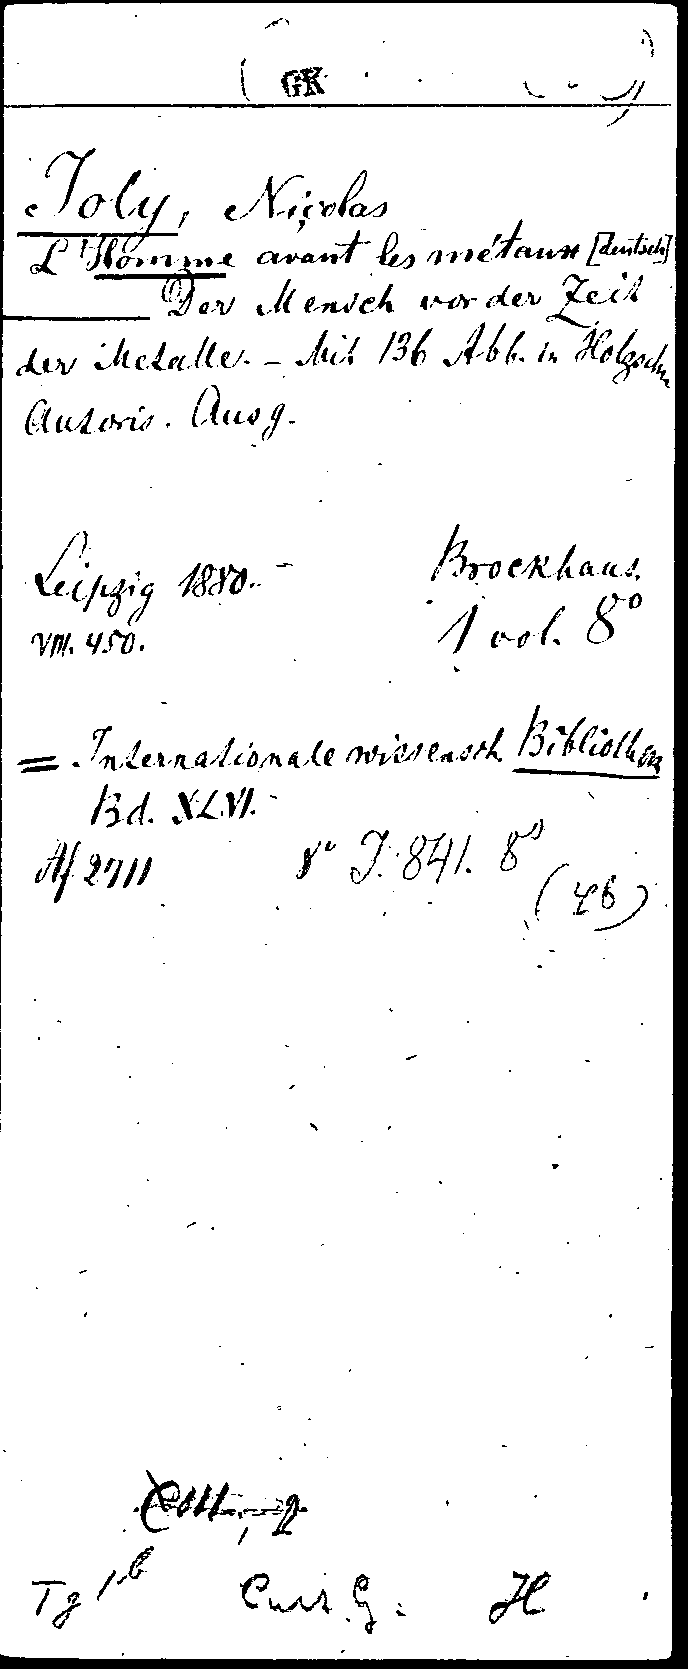 GK
Joly, Nicolas
L'Homme avant les métaux [deutsch]
Der Mensch vor der Zeit
der Metalle. – Mit 136 Abb. in Holzschn
Autoris. Ausg.
Leipzig 1880. – Brockhaus.
VIII. 450. 1 vol. 8°
= Internationale wissensch. Bibliothek
Bd. XLVI. –
Af 2711 8° J. 841. 8°
(46)
Tg 1b H